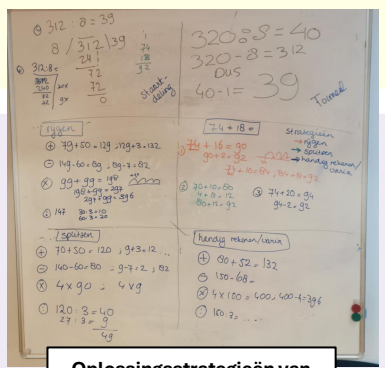 312 : 8 = 39
8 / 312 \ 39
24
72
72
0
74
18
92
Staartdeling
b) 312:8=
240 30x
72
72 9x
320 : 8 = 40
320 - 8 = 312
DUS
40-1 = 39
rijgen
+ 79+50=129, 129+3=132
- 149-60=89, 89-7=82
x 99+99=198
198+99=297
297+99=396
: 147
30:3=10
60:3=20
74+18=
Strategieën
→ rijgen
→ splitsen
→ handig rekenen/varia
1) 74+16=90
90+2=92
74+10=84, 84+8=92
2) 70+10=80
4+8=12
80+12=92
3) 74+20=94
94-2=92
splitsen
+ 70+50=120, 9+3=12...
- 140-60=80, 9-7=2, 82
x 4x90, 4x9
: 120:3=40
27:3=9
49
handig rekenen/varia
+ 80+52=132
- 150-68=
x 4x100=400, 400-4=396
: 150:3=....
Oplossingsstrategieën van